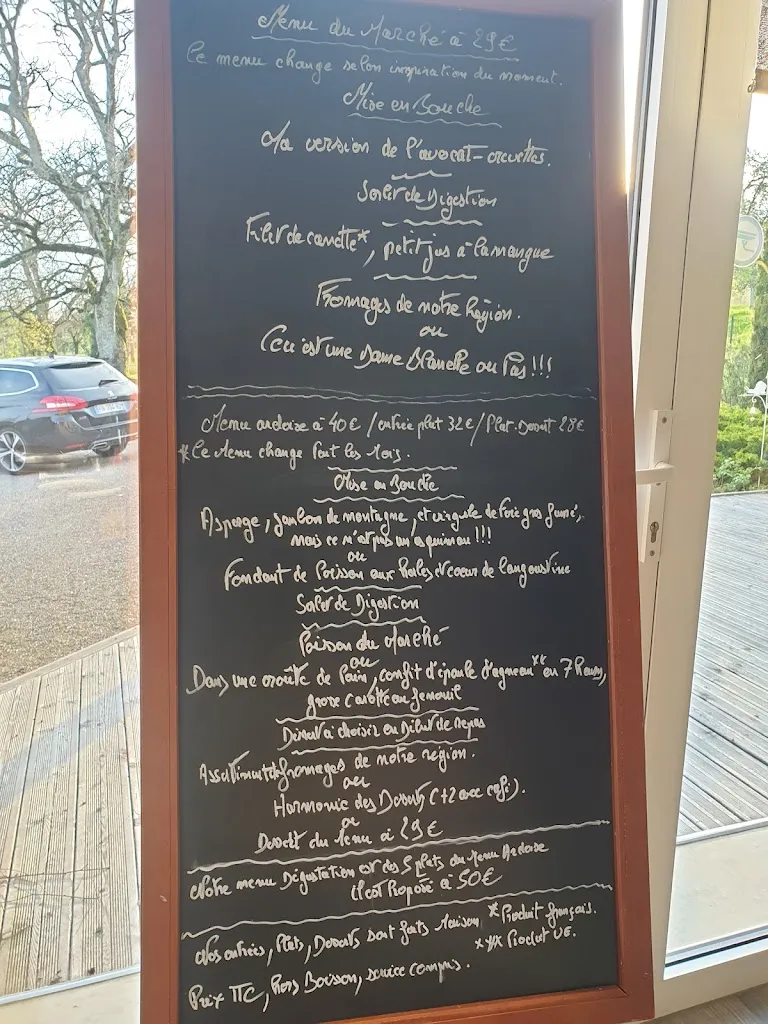 Menu du Marché à 29€
Ce menu change selon inspiration du moment.
Mise en Bouche
Ma version de l'avocat-crevettes.
Sorbet de Digestion
Filet de canette*, petit jus à la mangue
Fromages de notre Région.
ou
Ceci est une Dame Blanche ou Pas!!!
Menu ardoise à 40€ / entrée plat 32€ / Plat-Dessert 28€
*Ce Menu change tout les Mois.
Mise en Bouche
Asperge, jambon de montagne, et virgule de foie gras fumé,
mais ce n'est pas un esquimau!!!
ou
Fondant de Poisson aux Halles et coeur de langoustine
Sorbet de Digestion
Poisson du Marché
ou
Dans une croûte de Pain, confit d'épaule d'agneau** en 7 Heures,
grosse carotte au fenouil
Dessert à choisir en Début de repas
Assortiment de fromages de notre région.
ou
Harmonie des Desserts (+2 avec café).
ou
Dessert du Menu à 29€
Notre menu Dégustation est des 5 plats du Menu Ardoise
il est Proposé à 50€
Nos entrées, Plats, Desserts sont faits Maison *Produit français.
*** Produit UE.
Prix TTC, Hors Boisson, service compris.